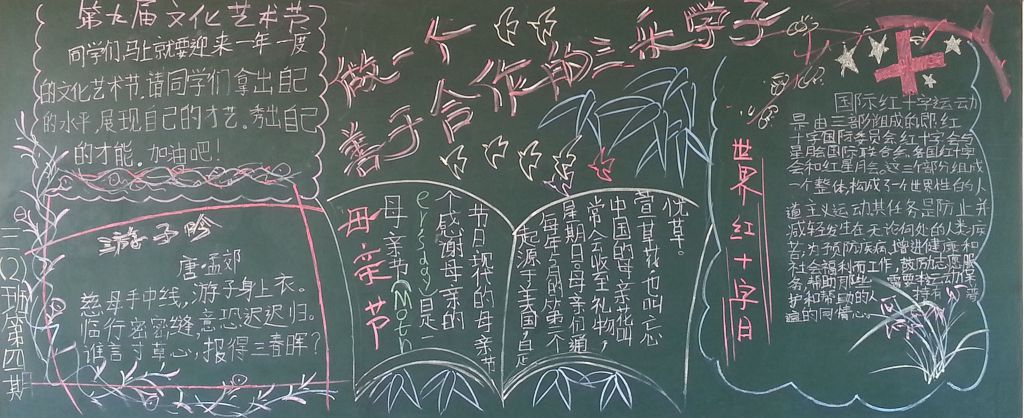 第九届文化艺术节
同学们马上就要迎来一年一度
的文化艺术节.请同学们拿出自己
的水平,展现自己的才艺。秀出自己
的才能。加油吧!
游子吟
唐孟郊
慈母手中线,游子身上衣。
临行密密缝,意恐迟迟归。
谁言寸草心,报得三春晖?
三(2)班第四期
做一个
善于合作的三采学子
母亲节
母亲节(Moth
er's Day)是一
个感谢母亲的
节日。现代的母亲节
起源于美国,自是
每年5月的第二个
星期日。母亲们通
常会收到礼物,
中国的母亲花叫
萱草花,也叫忘
忧草。
世界红十字日
国际红十字运动
是由三部分组成的,即红
十字国际委员会,红十字会
星月会国际联合会、各国红十字
会和红星月会。这三个部分组成
一个整体,构成了一个世界性的人
道主义运动,其任务是防止并
减轻发生在无论何处的人类疾
苦,为了预防疾病,增进健康和
社会福利而工作,鼓励志愿服
的同情心。